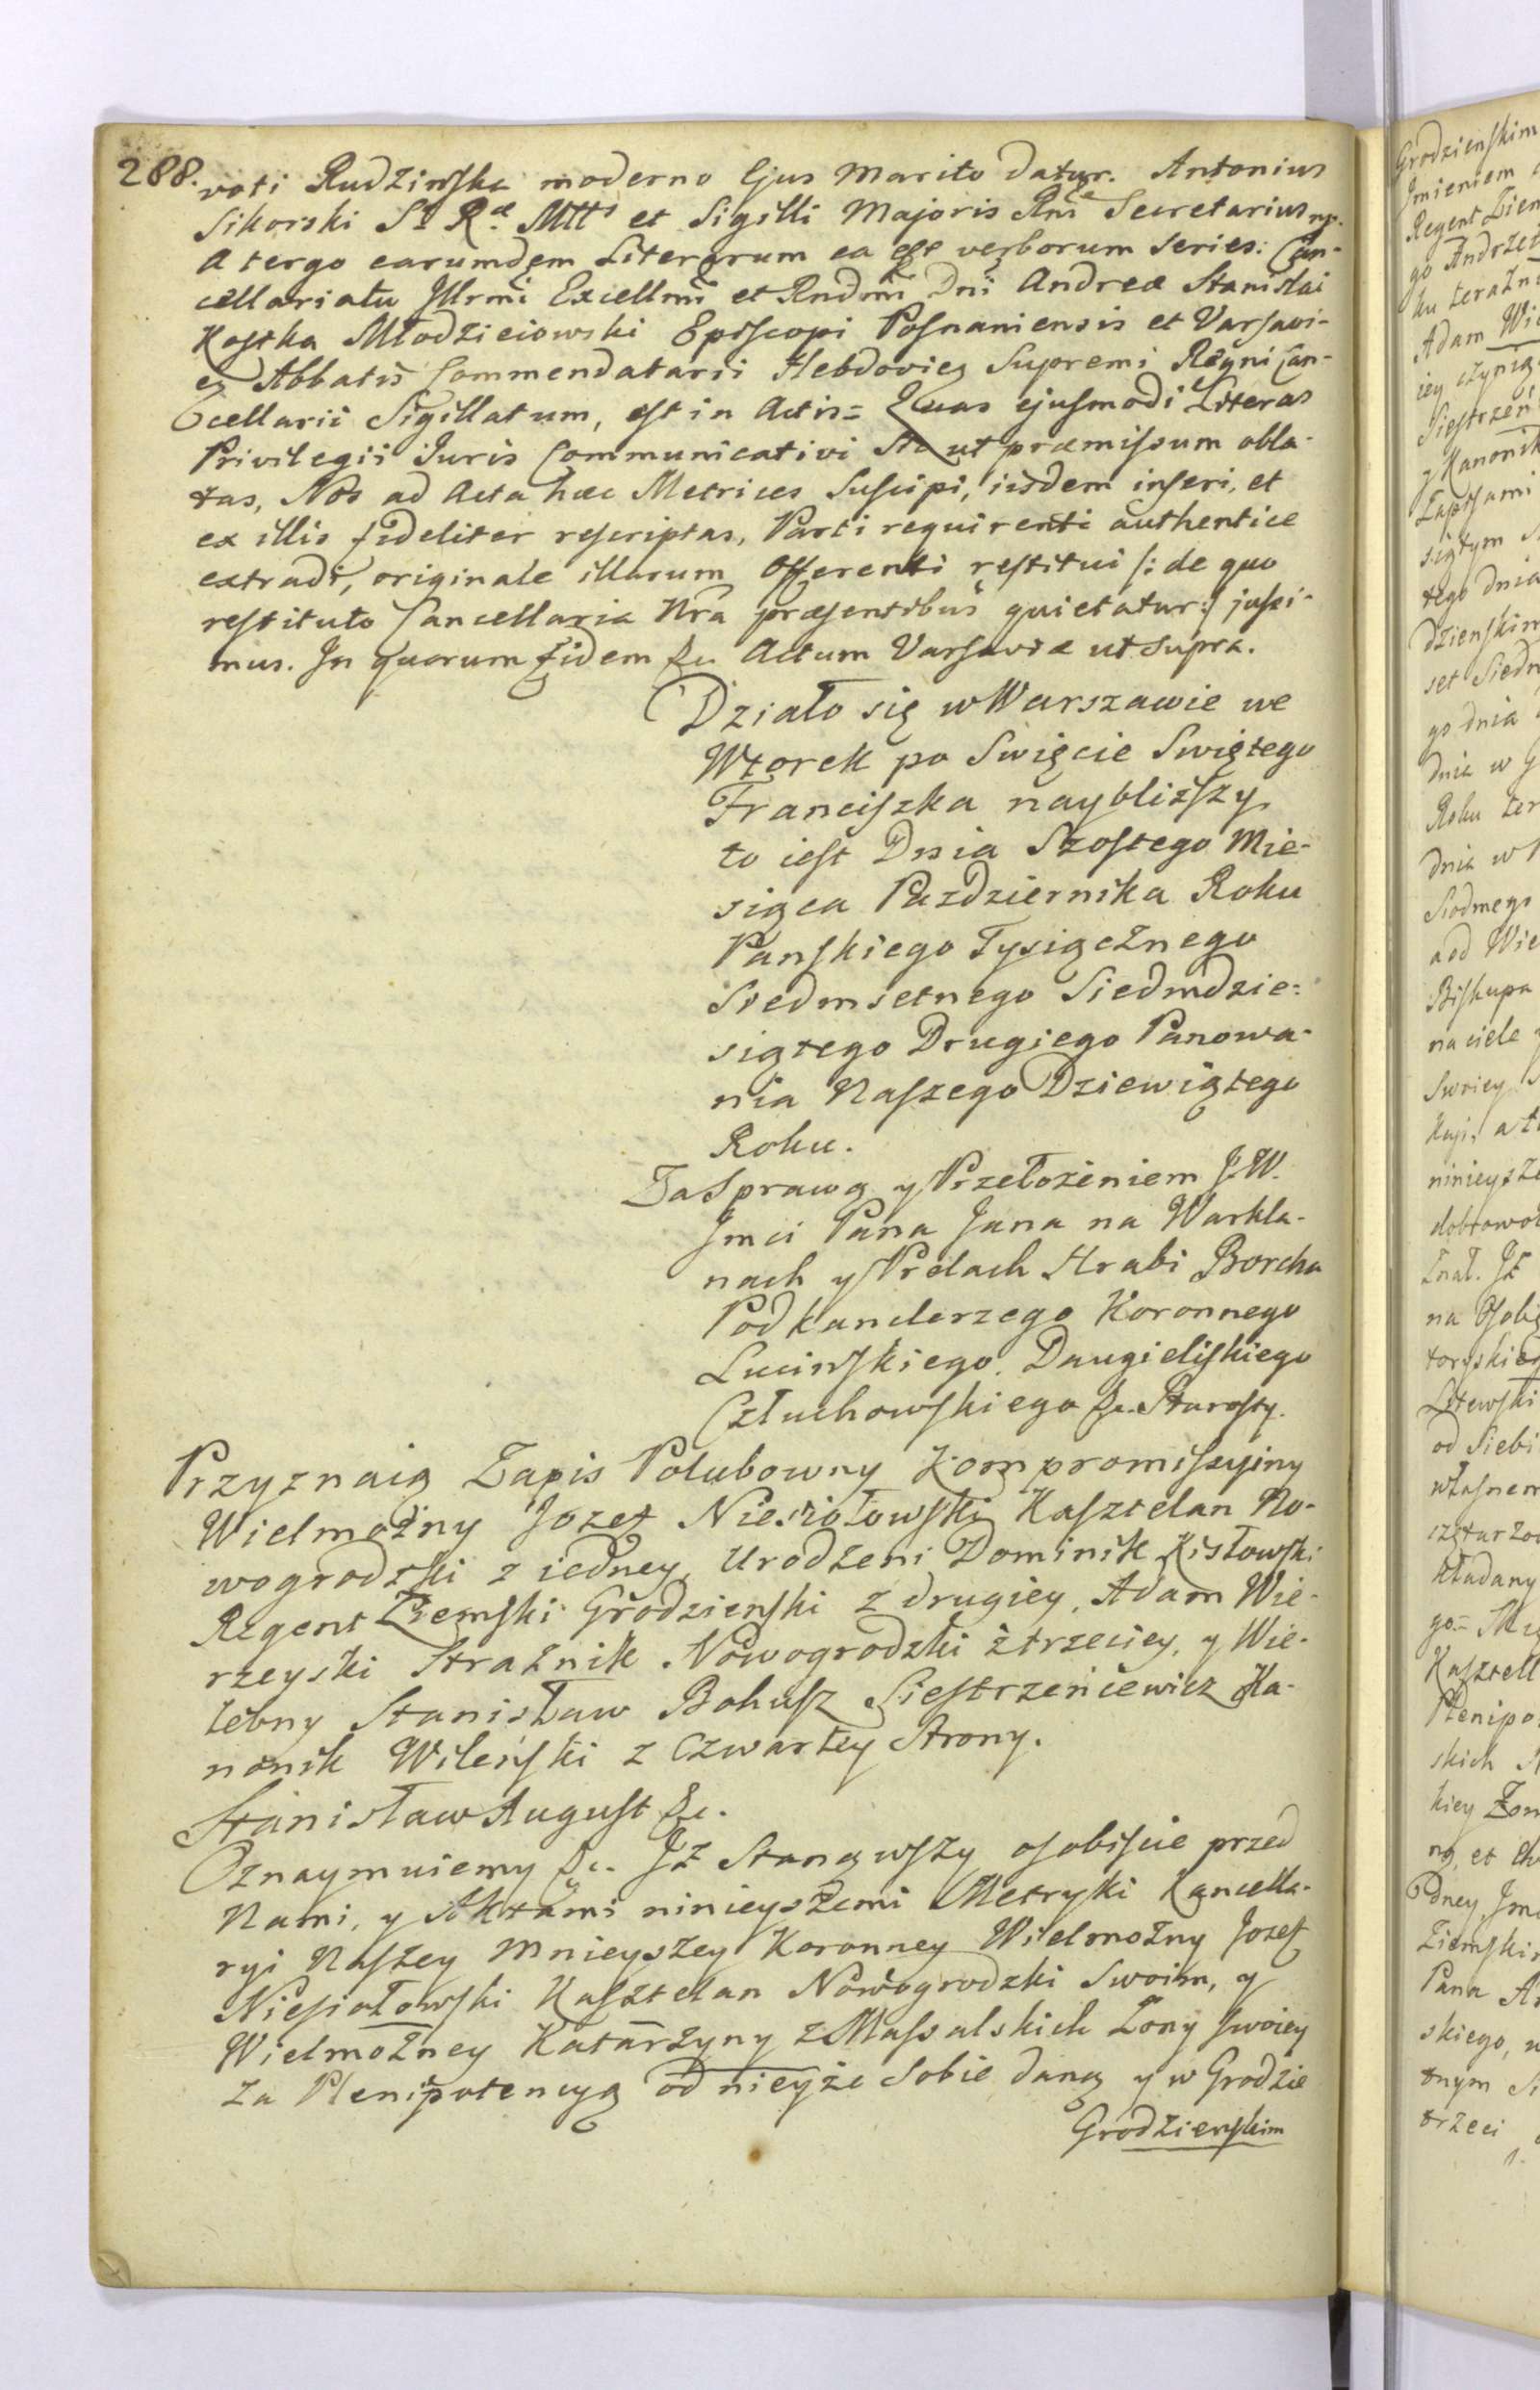 288.
voti Rudzinska moderno Ejus Marito datur. Antonius
Sikorski Sæ Ræ Mttis et Sigilli Majoris Rni Secretarius mp.
A tergo earumdem Literarum ea est verborum series: Can-
cellariatu Illrmi Excellmi et Rndmi Dni Andreæ Stanislai
Kostka Młodzieiowski Episcopi Posnaniensis et Varsavi-
æ Abbatis Commendatarii Hebdoviæ Supremi Regni Can-
cellarii Sigillatum, est in Actis= Quas ejusmodi Literas
Privilegii Juris Communicativi ut præmissum obla-
tas, Nos ad Acta hæc Metrices Suscipi, iisdem inseri, et
ex illis fideliter rescriptas, Parti requirenti authentice
extradi, originale illarum Offerenti restitui /: de quo
restituto Cancellaria Nra præsentibus quietatur :/ jussi-
mus. In quorum fidem &c. Actum Varsaviæ ut supra.
Działo się w Warszawie we
Wtorek po Swięcie Swiętego
Franciszka naybliższy
to iest Dnia Szostego Mie-
siąca Pazdziernika Roku
Panskiego Tysiącznego
Siedmsetnego Siedmdzie-
siątego Drugiego Panowa-
nia Naszego Dziewiątego
Roku.
Za Sprawą y Przełożeniem J.W.
Jmci Pana Jana na Warkla-
nach y Prelach Hrabi Borcha
Podkanclerzego Koronnego
Lucinskiego, Daugieliskiego
Człuchowskiego &c. Starosty.
Przyznaią Zapis Polubowny Kompromissyiny
Wielmożny Jozef Niesiołowski Kasztelan No-
wogrodzki z iedney, Urodzeni Dominik Kisłowski
Regent Ziemski Grodzienski z drugiey, Adam Wie-
rzeyski Strażnik Nowogrodzki z trzeciey, y Wie-
lebny Stanisław Bohusz Siestrzencewicz Ka-
nonik Wileński z Czwartey Strony.
Stanisław August &c.
Oznaymuiemy &c. Iż Stanąwszy osobiscie przed
Nami, y Aktami ninieyszemi Metryki Kancella-
ryi Naszey Mnieyszey Koronney Wielmożny Jozef
Niesiołowski Kasztelan Nowogrodzki Swoim, y
Wielmożney Katarzyny z Massalskich Zony swoiey
za Plenipotencyą od nieyże Sobie daną y w Grodzie
Grodzienskim
Grodzienskim
Jmieniem
Regent Ziem
go Andrze
ku teraźni
Adam Wie
iey czynią
Siestrzen
y Kanonik
Zapisami
siątym
tego dnia
dzienskim
set Siedm
go dnia
dnia w G
Roku ter
dnia w
Siodmego
a od Wie
Biskupa
na ciele
Swoiey
Kuyi, a t
ninieysze
dobrowol
znał. Iż
na Osobę
toryskie
Litewski
od Siebi
własnem
kładany
Kasztell
Plenipo
skich
kiey Zon
ną, et
dney Jm
Ziemski
Pana A
skiego, w
tnym Si
trzeci